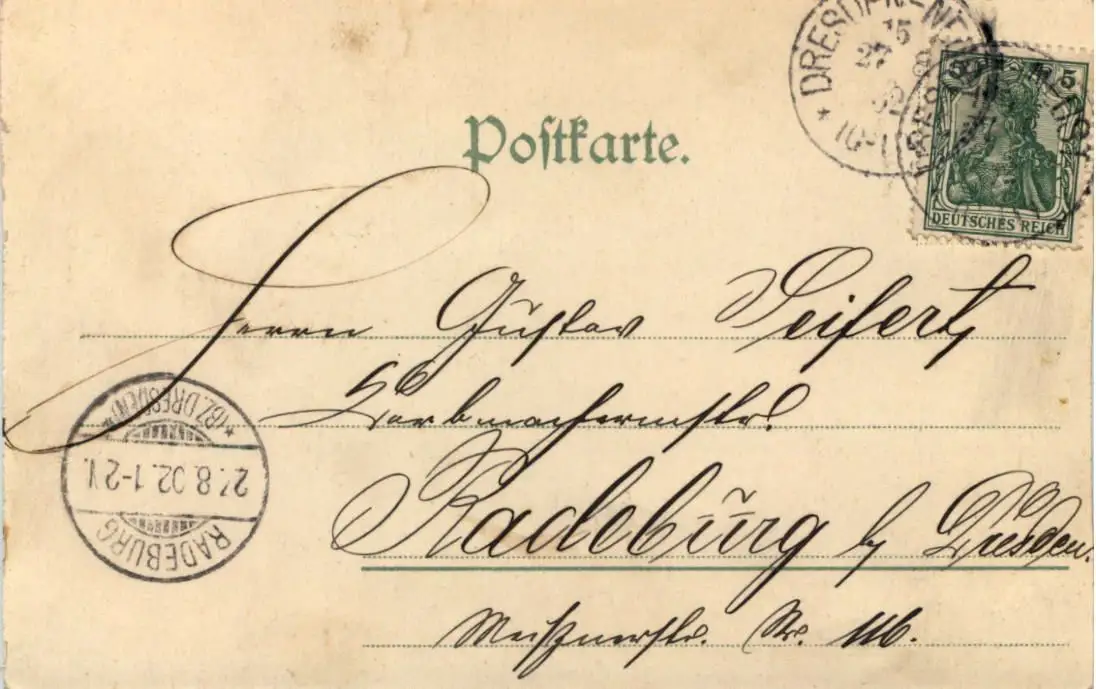 DRESDEN-NEU
15
27
8
02
10-1
5 5
DEUTSCHES REICH
Postkarte.
Herrn Gustav Seifert,
Korbmachermstr.
Radeburg b/ Dresden.
Meißnerstr. Nr.
* (BZ. DRESDEN) *
27.8.02.1-2 V.
RADEBURG